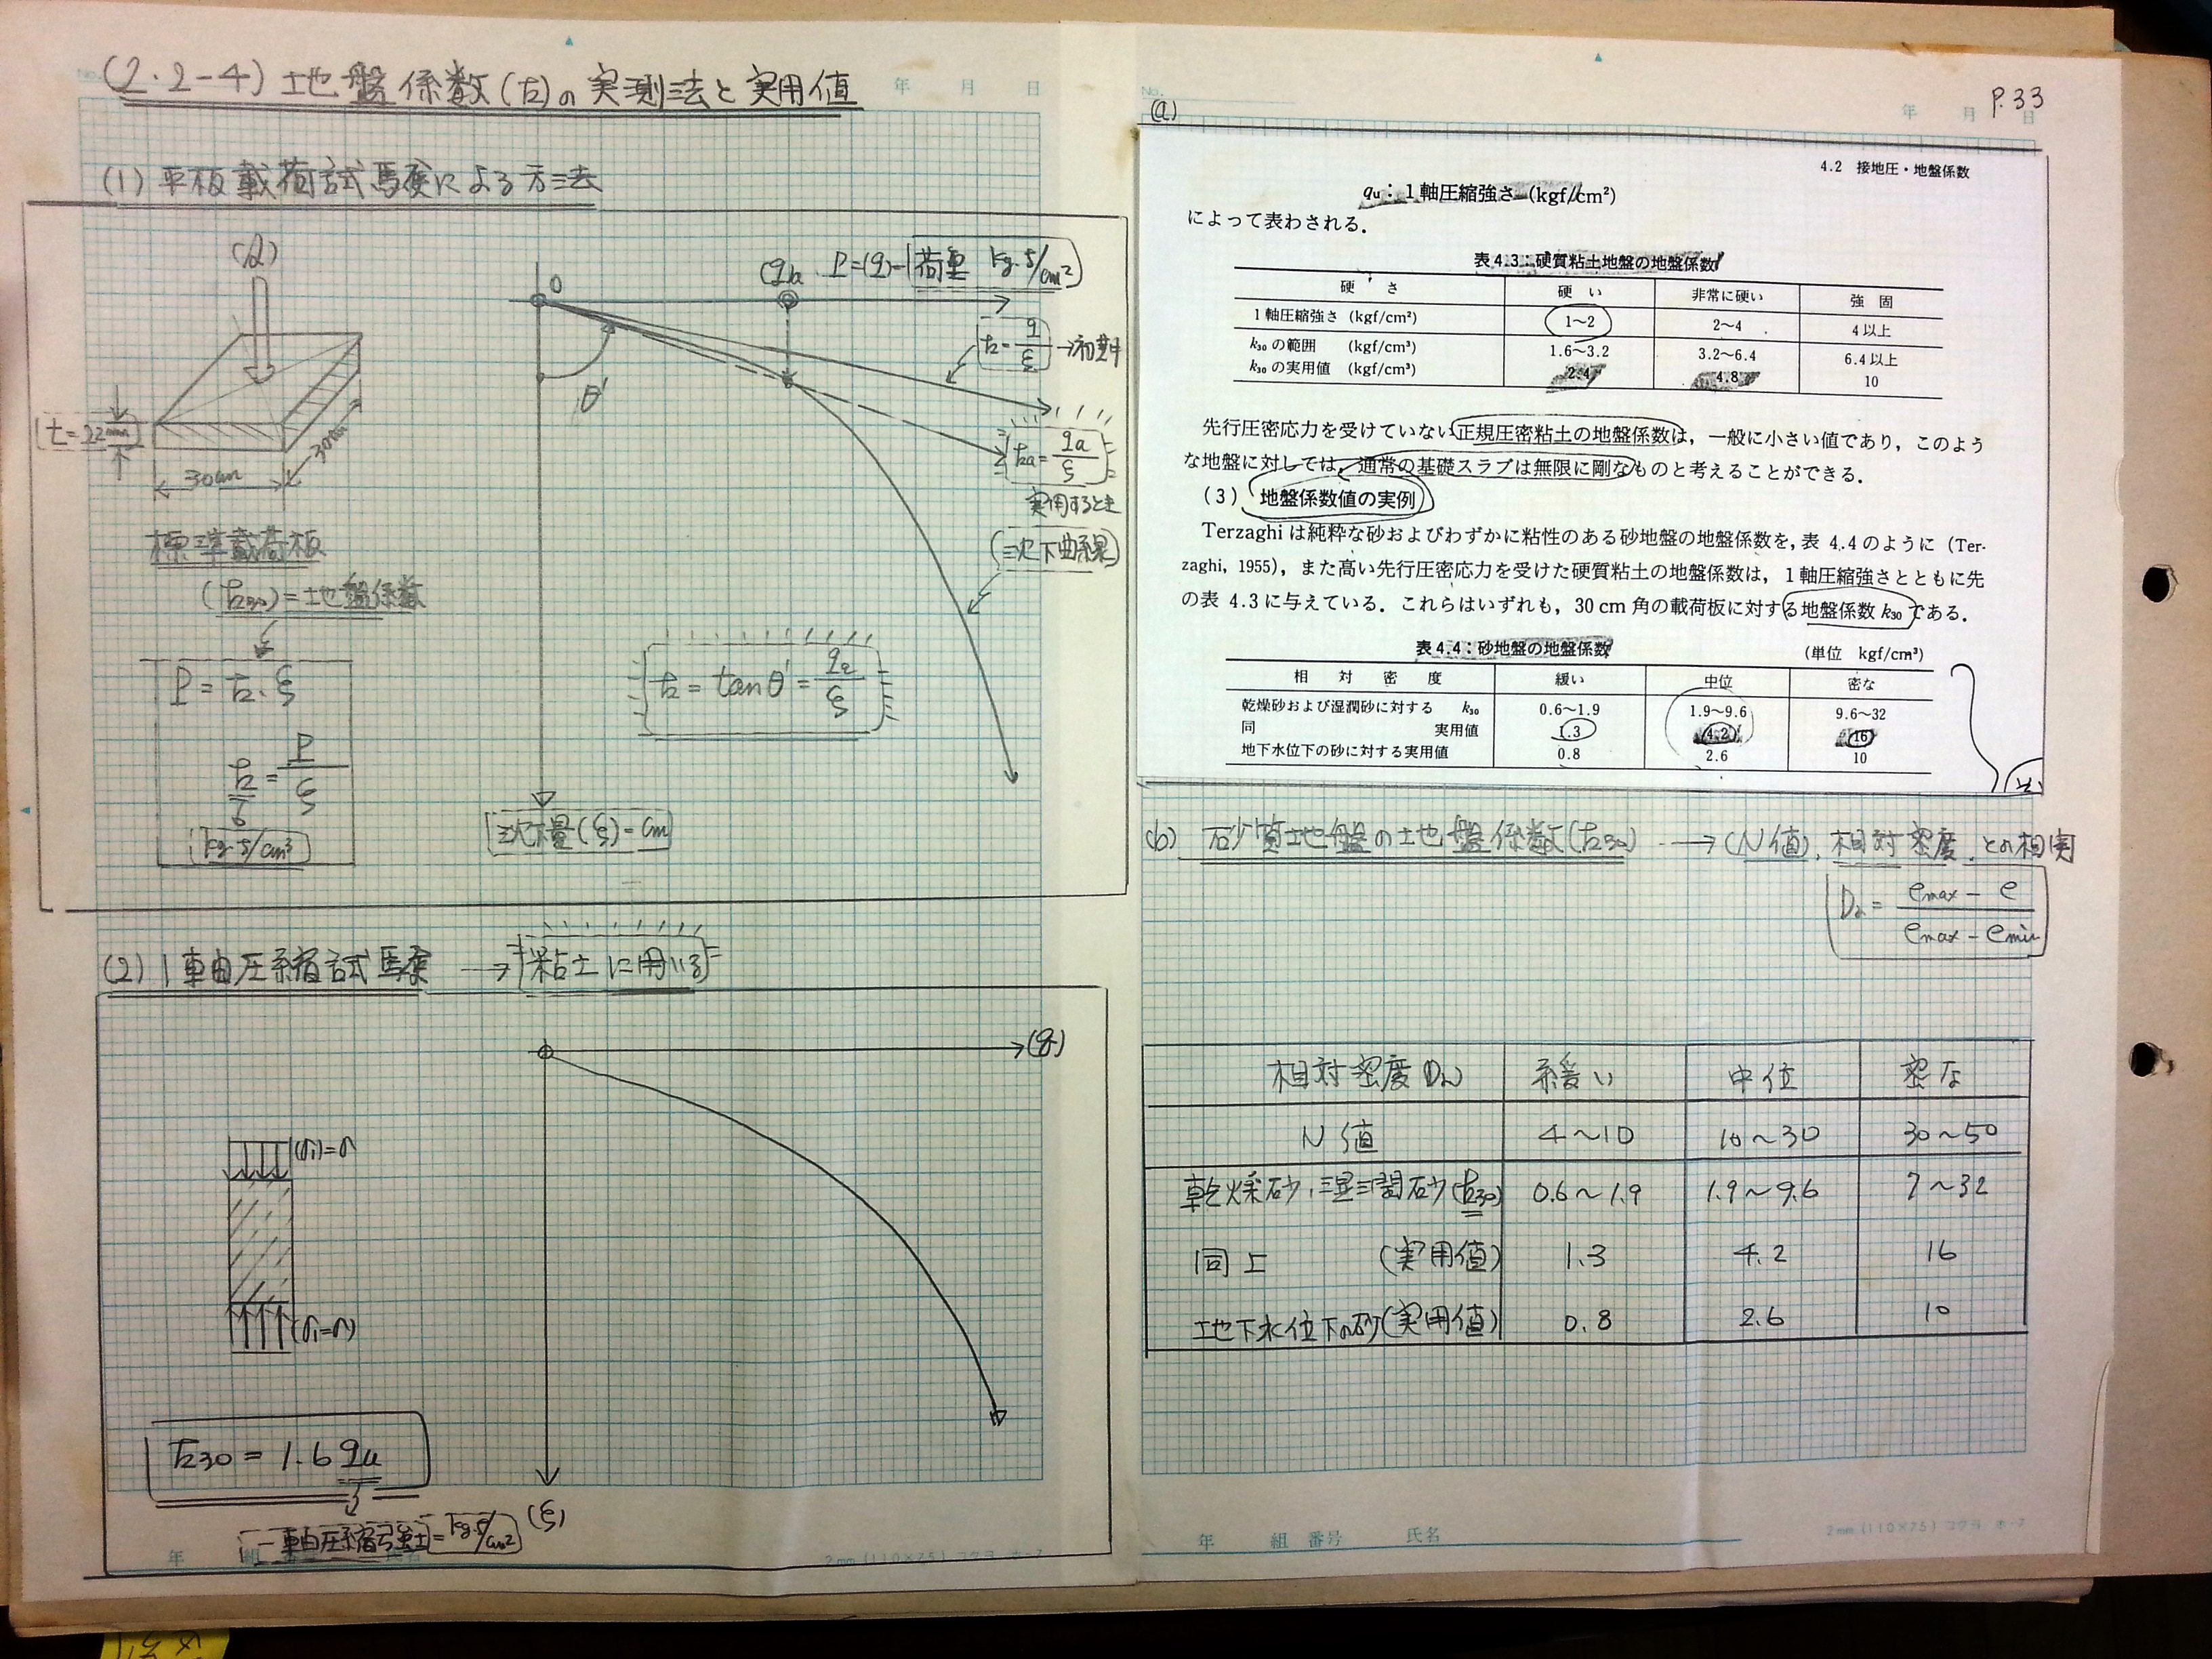 (2.2-4) 地盤係数(k)の実測法と実用値
(1) 平板載荷試験による方法
t=22mm
30cm
30cm
標準載荷板
(k30)=地盤係数
P = k・ξ
k = P/ξ
kg・f/cm³
O
qa
P=(q)-荷重 kg・f/cm²
θ'
k=q/ξ →初期
ka=qa/ξ
実用するとき
(沈下曲線)
k = tanθ' = qa/ξ
沈下量(ξ)-cm
(2) 1軸圧縮試験 → 粘土に用いる
(q)
(σ1)=σ
(σ1=σ)
k30 = 1.6 qu
一軸圧縮強土=kg・f/cm²
(ξ)
年 組 番号 氏名
2mm (110×75) コクヨ ホ-7
No.
年 月 日
P.33
(a)
4.2 接地圧・地盤係数
qu：1軸圧縮強さ (kgf/cm²)
によって表わされる．
表4.3：硬質粘土地盤の地盤係数
硬 さ 硬 い 非常に硬い 強 固
1軸圧縮強さ (kgf/cm²) 1〜2 2〜4 4以上
k30の範囲 (kgf/cm³) 1.6〜3.2 3.2〜6.4 6.4以上
k30の実用値 (kgf/cm³) 2.4 4.8 10
先行圧密応力を受けていない正規圧密粘土の地盤係数は，一般に小さい値であり，このよう
な地盤に対しては，通常の基礎スラブは無限に剛なものと考えることができる．
(3) 地盤係数値の実例
Terzaghiは純粋な砂およびわずかに粘性のある砂地盤の地盤係数を，表4.4のように (Ter-
zaghi, 1955)，また高い先行圧密応力を受けた硬質粘土の地盤係数は，1軸圧縮強さとともに先
の表4.3に与えている．これらはいずれも，30 cm 角の載荷板に対する地盤係数 k30 である．
表4.4：砂地盤の地盤係数 (単位 kgf/cm³)
相 対 密 度 緩い 中位 密な
乾燥砂および湿潤砂に対する k30 0.6〜1.9 1.9〜9.6 9.6〜32
同 実用値 1.3 4.2 16
地下水位下の砂に対する実用値 0.8 2.6 10
(b) 砂質地盤の地盤係数(k30) → (N値), 相対密度, との相関
Dr = (emax - e)/(emax - emin)
相対密度Dr 緩い 中位 密な
N値 4〜10 10〜30 30〜50
乾燥砂,湿潤砂(k30) 0.6〜1.9 1.9〜9.6 7〜32
同上 (実用値) 1.3 4.2 16
地下水位下の砂(実用値) 0.8 2.6 10
年 組 番号 氏名
2mm (110×75) コクヨ ホ-7